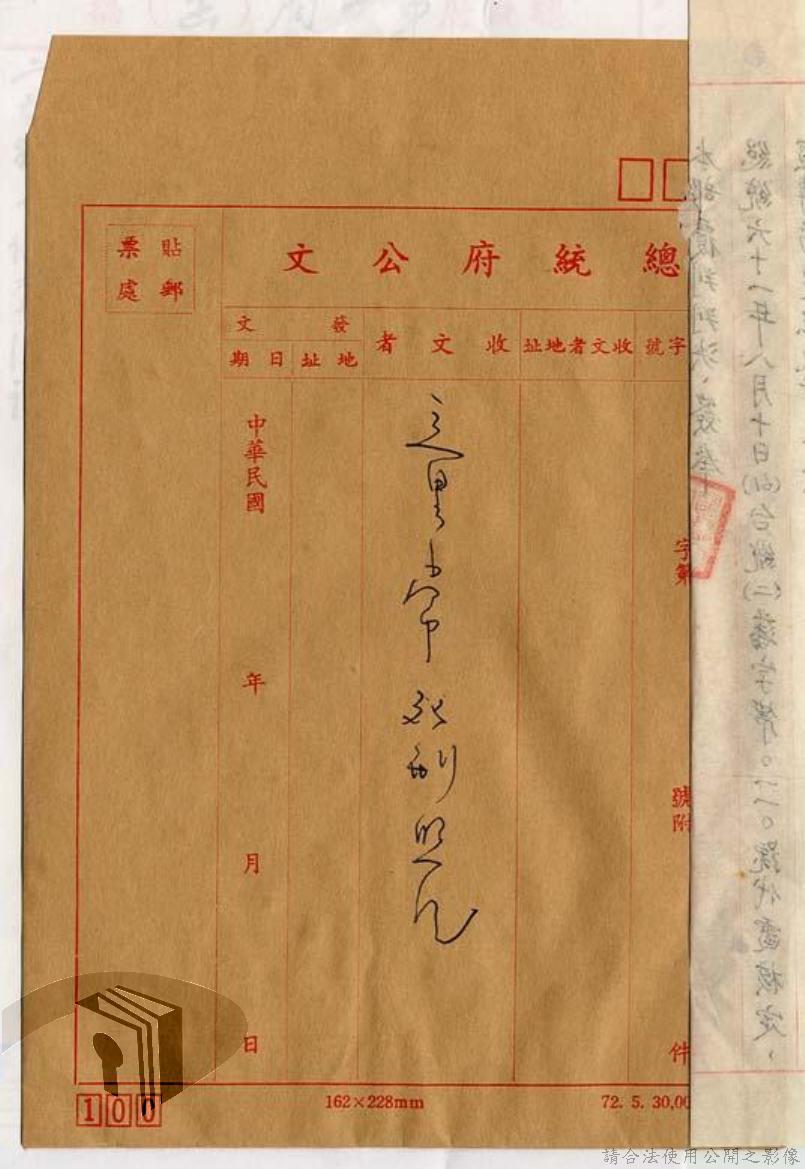 總統府公文
貼郵
票處
字號
收文者地址
收文者
發文
地址
日期
字第
號附
件
死刑照片
中華民國
年
月
日
100
162×228mm
72. 5. 30,00
總統六十一年八月十日(61)台統(二)
字第
號代電核定、
本部覆判判決、
請合法使用公開之影像